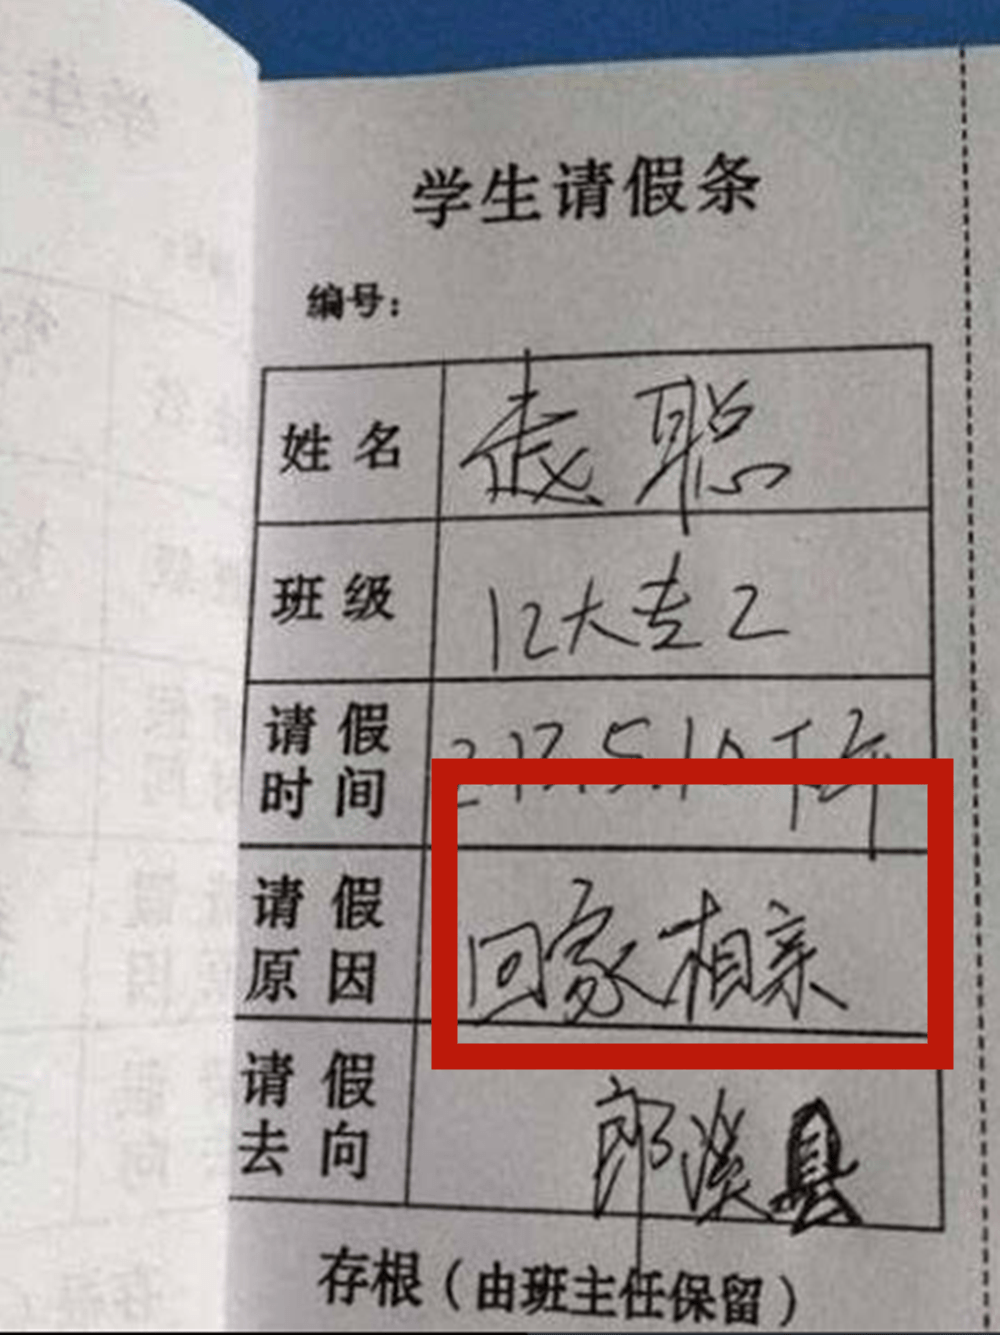 学生请假条
编号:
姓名 聪
班级 12大专2
请假时间 下午
请假原因 回家相亲
请假去向 郎溪县
存根(由班主任保留)